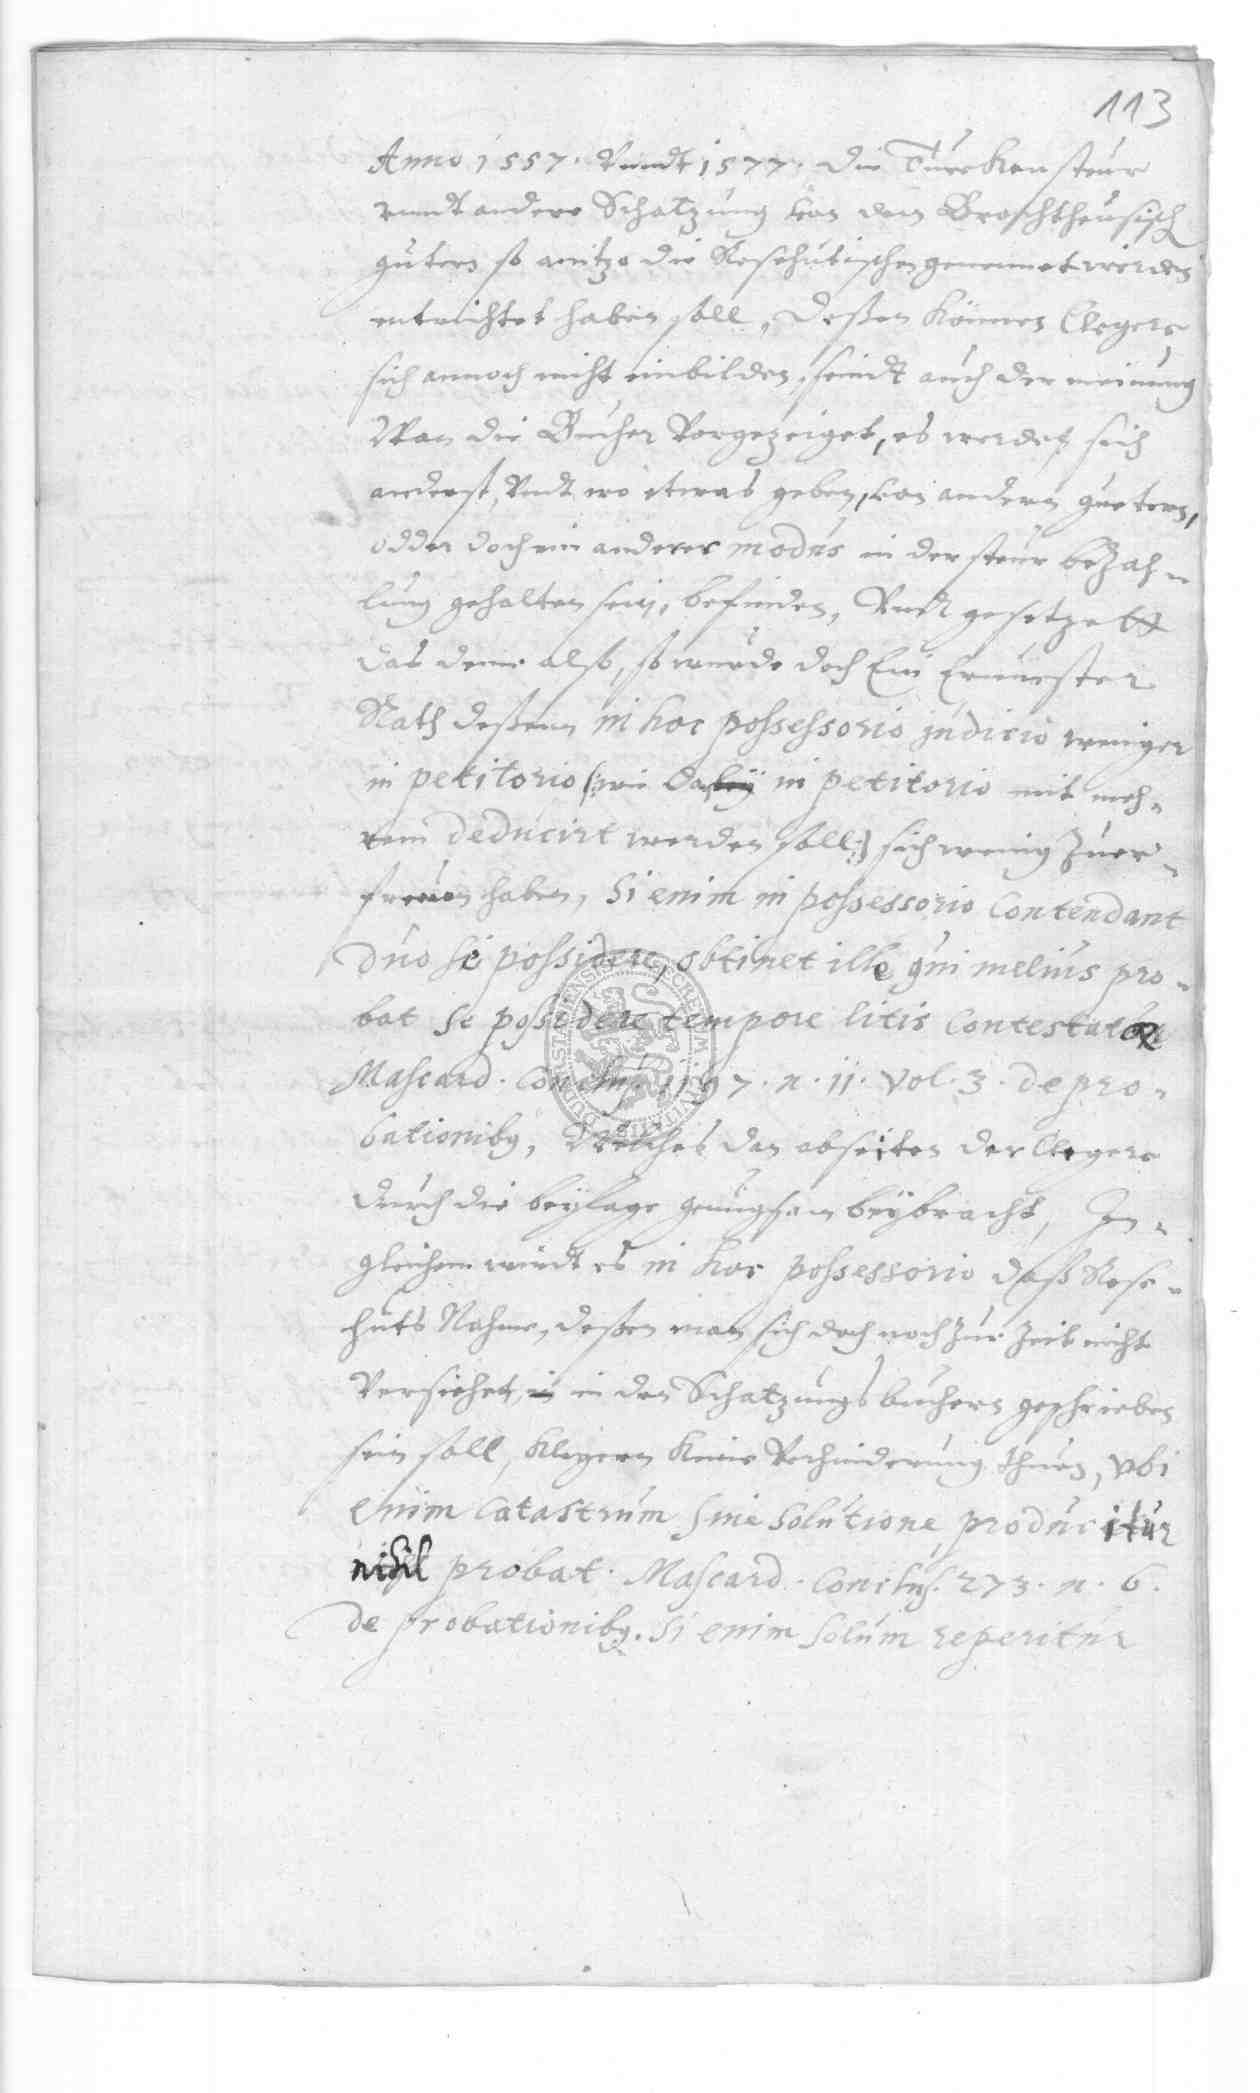 113
Anno 1557. Vnndt 1577. die Türcken steür
vnndt andere Schatzung von den
gütern so anitzo die Rosehütischen genennet werden
entrichtet haben soll, deßen können Clegere
sich annoch nicht einbilden, seindt auch der meinung
Wan die Bücher Vorgezeiget, es werde sich
anderst, Vndt wo etwas geben, von andern guetern,
odder doch ein anderer modus in der steür bezah-
lung gehalten sein, befinden, Vndt gesetzett
das deme also, so würde doch Ein Ernvester
Rath deßenn in hoc possessorio judicio weniger
in petitorio (: wie da in petitorio mit meh-
rem deducirt werden soll :) sich wenig zuer-
frewen haben, Si enim in possessorio Contendant
duo se possidere, obtinet ille qui melius pro-
bat se possidere tempore litis Contestatae
Mascard. Conclus. 1197. n. 11. Vol. 3. de pro-
bationibus, Welches dan abseiten der Clegere
durch die beylage genugsam beybracht, In-
gleichem wirdt es in hoc possessorio daß Rose-
huts Nahme, deßen man sich doch noch zur Zeit nicht
Versiehet, in den Schatzungsbüchern geschrieben
sein soll, Klegern keine Verhinderung thuen, Vbi
enim Catastrum sine solutione, producitur
nihil probat. Mascard. Conclus. 273. n. 6.
de probationibus. Si enim solum reperitur